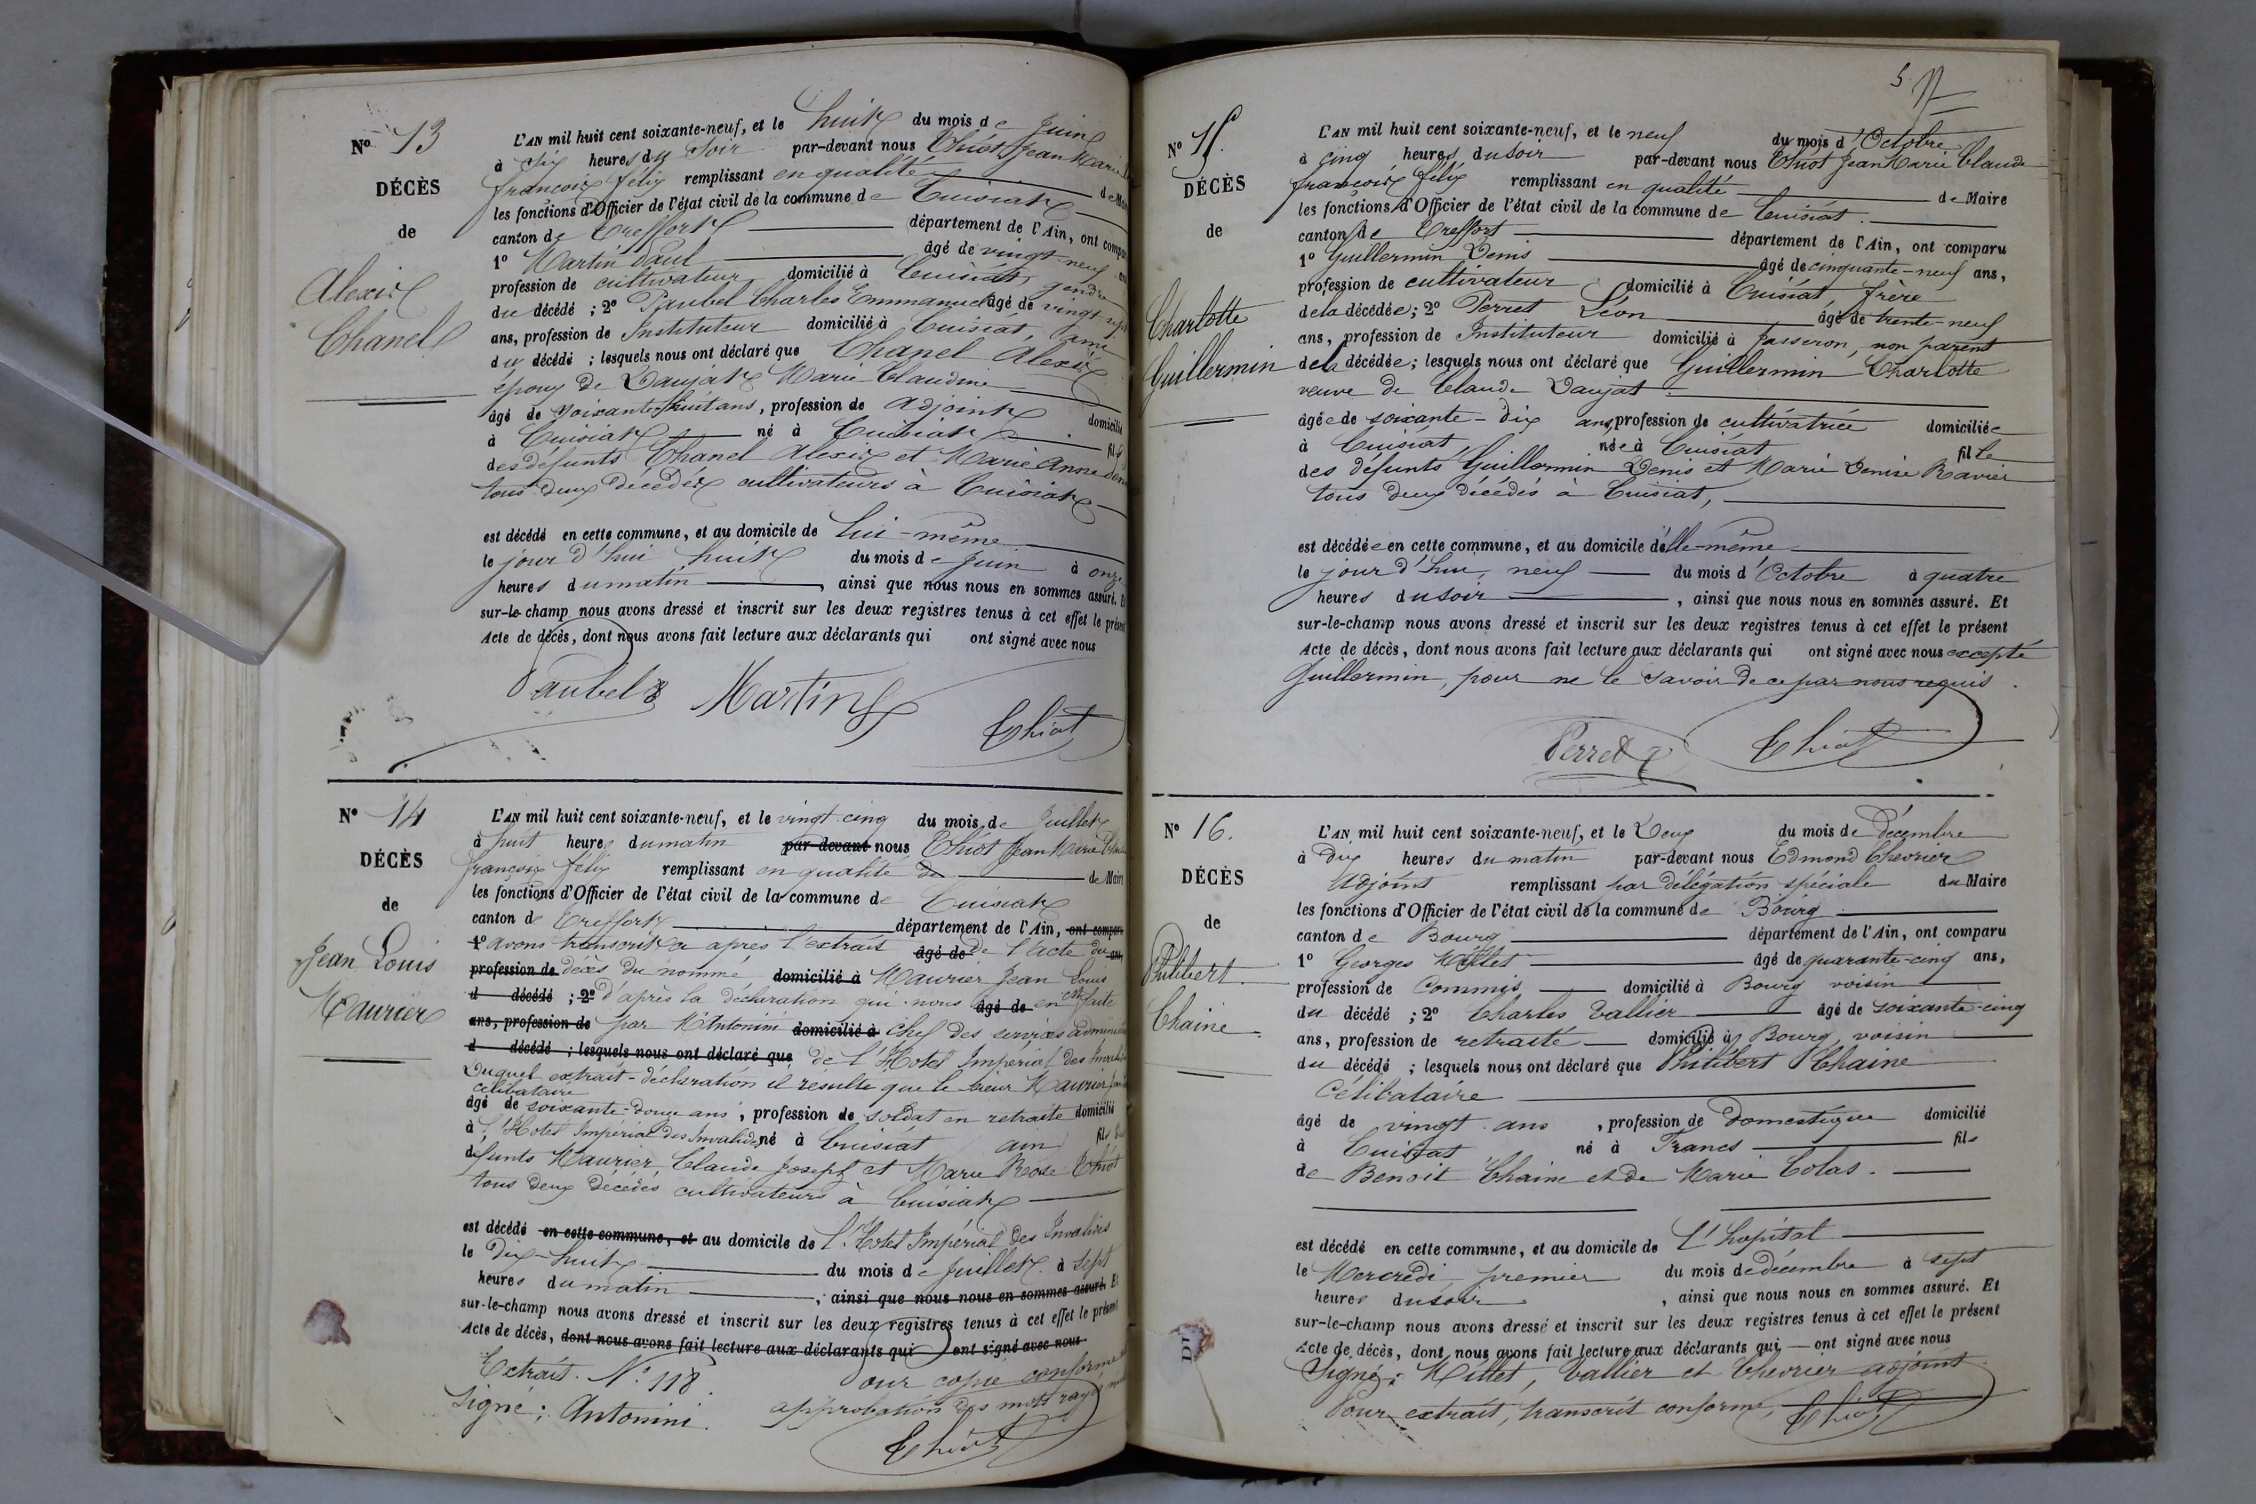 Nº 13
DÉCÈS
de
Alexis
Chanel
L'AN mil huit cent soixante-neuf, et le huit du mois de Juin
à Six heures du Soir par-devant nous Chiot Jean Marie
françois félix remplissant en qualité de Maire
les fonctions d'Officier de l'état civil de la commune de Cuisiat
canton de Treffort département de l'Ain, ont comparu
1º Martin Paul âgé de vingt-neuf ans
profession de cultivateur domicilié à Cuisiat, gendre
du décédé ; 2º Paubel Charles Emmanuel âgé de vingt sept
ans, profession de Instituteur domicilié à Cuisiat, ami
du décédé ; lesquels nous ont déclaré que Chanel Alexis
époux de Daujat Marie Claudine
âgé de soixante-huit ans, profession de Adjoint domicilié
à Cuisiat né à Cuisiat fils
des défunts Chanel Alexis et Marie Anne
tous deux décédés cultivateurs à Cuisiat
est décédé en cette commune, et au domicile de lui-même
le jour d'hui huit du mois de Juin à onze
heures du matin, ainsi que nous nous en sommes assuré. Et
sur-le-champ nous avons dressé et inscrit sur les deux registres tenus à cet effet le présent
Acte de décès, dont nous avons fait lecture aux déclarants qui ont signé avec nous
Paubel Martin
Chiot
Nº 14
DÉCÈS
de
Jean Louis
Maurier
L'AN mil huit cent soixante-neuf, et le vingt cinq du mois de Juillet
à huit heures du matin par-devant nous Chiot Jean Marie Claude
françois félix remplissant en qualité de de Maire
les fonctions d'Officier de l'état civil de la commune de Cuisiat
canton de Treffort département de l'Ain, ont comparu
1º avons transcrit ci après l'extrait âgé de de l'acte du ans,
profession de décès du nommé domicilié à Maurier Jean Louis
d décédé ; 2º d'après la déclaration qui nous âgé de en est faite
ans, profession de par M. Antonini domicilié à chef des services
d décédé ; lesquels nous ont déclaré que de l'Hotel Impérial des Invalides
Duquel extrait-déclaration il résulte que le sieur Maurier
célibataire
âgé de soixante-douze ans, profession de soldat en retraite domicilié
à l'Hotel Impérial des Invalides né à Cuisiat ain fils
défunts Maurier Claude Joseph et Marie Rose Chiot
tous deux décédés cultivateurs à Cuisiat
est décédé en cette commune, et au domicile de l'Hotel Impérial Des Invalides
le Dix-huit du mois de Juillet à sept
heures du matin, ainsi que nous nous en sommes assuré. Et
sur-le-champ nous avons dressé et inscrit sur les deux registres tenus à cet effet le présent
Acte de décès, dont nous avons fait lecture aux déclarants qui ont signé avec nous
Extrait. Nº 118 Pour copie conforme
Signé : Antonini approbation des mots rayés
Chiot
Nº 15
DÉCÈS
de
Charlotte
Guillermin
L'AN mil huit cent soixante-neuf, et le neuf du mois d'Octobre
à cinq heures du soir par-devant nous Chiot Jean Marie Claude
françois félix remplissant en qualité de Maire
les fonctions d'Officier de l'état civil de la commune de Cuisiat
canton de Treffort département de l'Ain, ont comparu
1º Guillermin Denis âgé de cinquante-neuf ans,
profession de cultivateur domicilié à Cuisiat, frère
de la décédée ; 2º Perret Léon âgé de trente-neuf
ans, profession de Instituteur domicilié à Jasseron, non parent
de la décédée ; lesquels nous ont déclaré que Guillermin Charlotte
veuve de Claude Daujat
âgée de soixante-dix ans, profession de cultivatrice domiciliée
à Cuisiat, née à Cuisiat fille
des défunts Guillermin Denis et Marie Denise Ravier
tous deux décédés à Cuisiat,
est décédée en cette commune, et au domicile d'elle-même
le jour d'hui, neuf du mois d'Octobre à quatre
heures du soir, ainsi que nous nous en sommes assuré. Et
sur-le-champ nous avons dressé et inscrit sur les deux registres tenus à cet effet le présent
Acte de décès, dont nous avons fait lecture aux déclarants qui ont signé avec nous excepté
Guillermin, pour ne le savoir de ce par nous requis.
Perret Chiot
Nº 16.
DÉCÈS
de
Philibert
Chaine
L'AN mil huit cent soixante-neuf, et le Deux du mois de Décembre
à Dix heures du matin par-devant nous Edmond Chevrier
Adjoint remplissant par délégation spéciale du Maire
les fonctions d'Officier de l'état civil de la commune de Bourg
canton de Bourg département de l'Ain, ont comparu
1º Georges Millet âgé de quarante-cinq ans,
profession de Commis domicilié à Bourg voisin
du décédé ; 2º Charles Vallier âgé de soixante-cinq
ans, profession de retraité domicilié à Bourg, voisin
du décédé ; lesquels nous ont déclaré que Philibert Chaine
Célibataire
âgé de vingt ans, profession de Domestique domicilié
à Cuisiat né à Francs fils
de Benoit Chaine et de Marie Colas.
est décédé en cette commune, et au domicile de L'hopital
le Mercredi premier du mois de décembre à sept
heures du soir, ainsi que nous nous en sommes assuré. Et
sur-le-champ nous avons dressé et inscrit sur les deux registres tenus à cet effet le présent
Acte de décès, dont nous avons fait lecture aux déclarants qui ont signé avec nous
Signé : Millet, Vallier et Chevrier adjoint
Pour extrait, transcrit conforme, Chiot